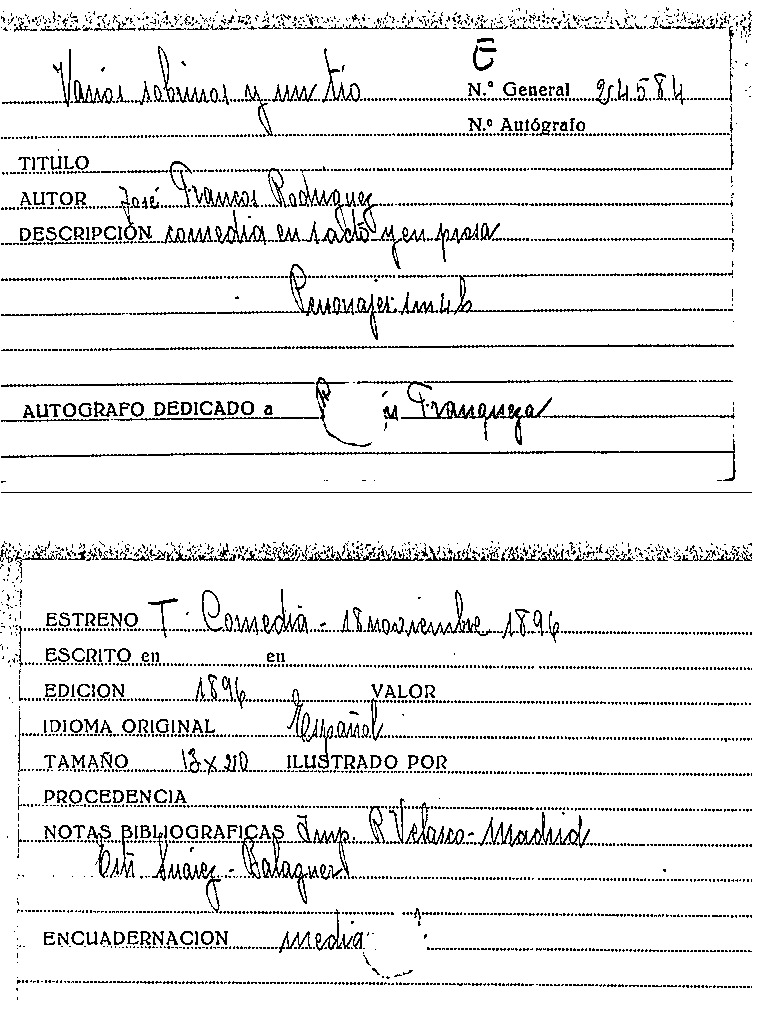 E
Varios sobrinos y un tío
N.º General 24584
N.º Autógrafo
TITULO
AUTOR José Francos Rodríguez
DESCRIPCIÓN comedia en 1 acto y en prosa
Personajes
AUTOGRAFO DEDICADO a Franqueza
ESTRENO T. Comedia - 18 noviembre 1896
ESCRITO en en
EDICION 1896 VALOR
IDIOMA ORIGINAL Español
TAMAÑO 13 x 20 ILUSTRADO POR
PROCEDENCIA
NOTAS BIBLIOGRAFICAS Imp. R Velasco - Madrid
Suárez - Balaguer
ENCUADERNACION media